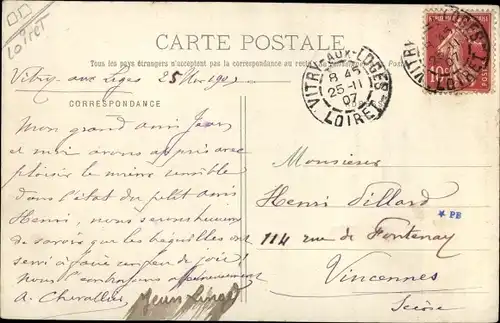 Loiret
CARTE POSTALE
Tous les pays étrangers n'acceptent pas la correspondance au recto
Vitry aux Loges 25
CORRESPONDANCE
VITRY-AUX-LOGES
8 45
25-11
07
LOIRET
Mon grand ami Jean
et moi avons appris avec
plaisir le mieux sensible
dans l'état du petit ami
Henri, nous serons heureux
de savoir que les béquilles ont
servi à faire un feu de joie!
Nous l'embrassons affectueusement
A. Chevallier
Jean
Monsieur
Henri Villard
* PB
114 rue de Fontenay
Vincennes
Seine